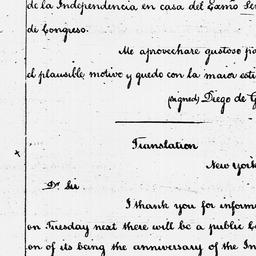 de la Independencia en casa del
de Congreso.
Me aprovechare gustoso
el plausible motivo y quedo con la maior
(signed) Diego de
Translation
New York
Dr Sir
I thank you for
on Tuesday next there will be a public
on of its being the anniversary of the